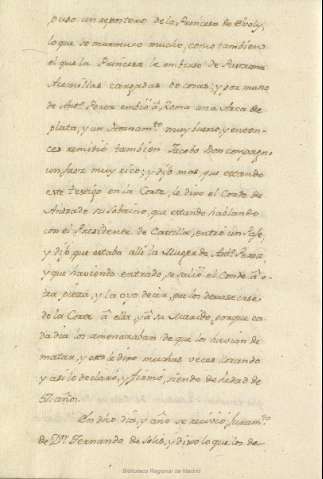 puso un repostero de la Princesa de Eboly,
lo que se murmuro mucho, como tambien
el que la Princesa le embiase de Pastrana
Acemilas cargadas de cosas; y por mano
de Antº Perez embió á Roma una Arca de
plata, y un Ornamtº muy bueno, y enton-
ces remitió tambien Jacobo Don
un muy rico; y dijo mas, que estando
este testigo en la Corte, le dixo el Conde de
Andrade su sobrino, que estando hablando
con el Presidente de Castilla, entró un Paje,
y dijo que estaba alli la Muger de Antº Perez,
y que haviendo entrado, se salió el Conde á o-
tra pieza, y la oyo decir, que los desterrase
de la Corte á ella, y á su Marido, porque ca-
da dia los amenazaban de que los havian de
matar, y esto le dixo muchas veces llorando
y asi lo declaró, y firmó, siendo de hedad de
años.
En dho dia, y año se recivió Juramtº
de Dn Fernando de Solis, y dixo lo que los de-
Biblioteca Regional de Madrid